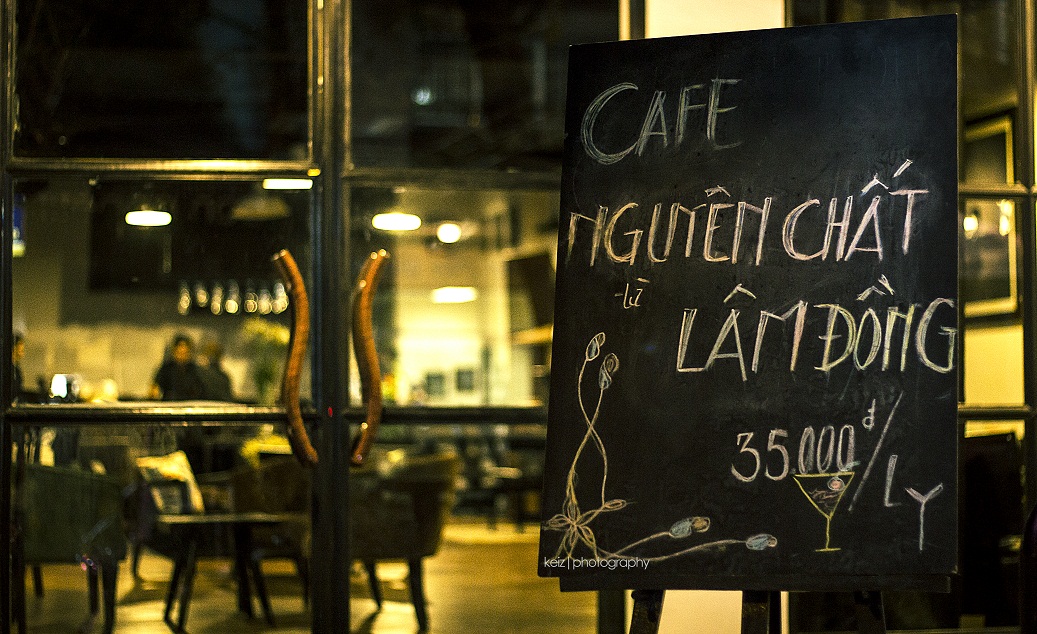 CAFE
NGUYÊN CHẤT
-từ
LÂM ĐỒNG
35.000đ/LY
keiz|photography